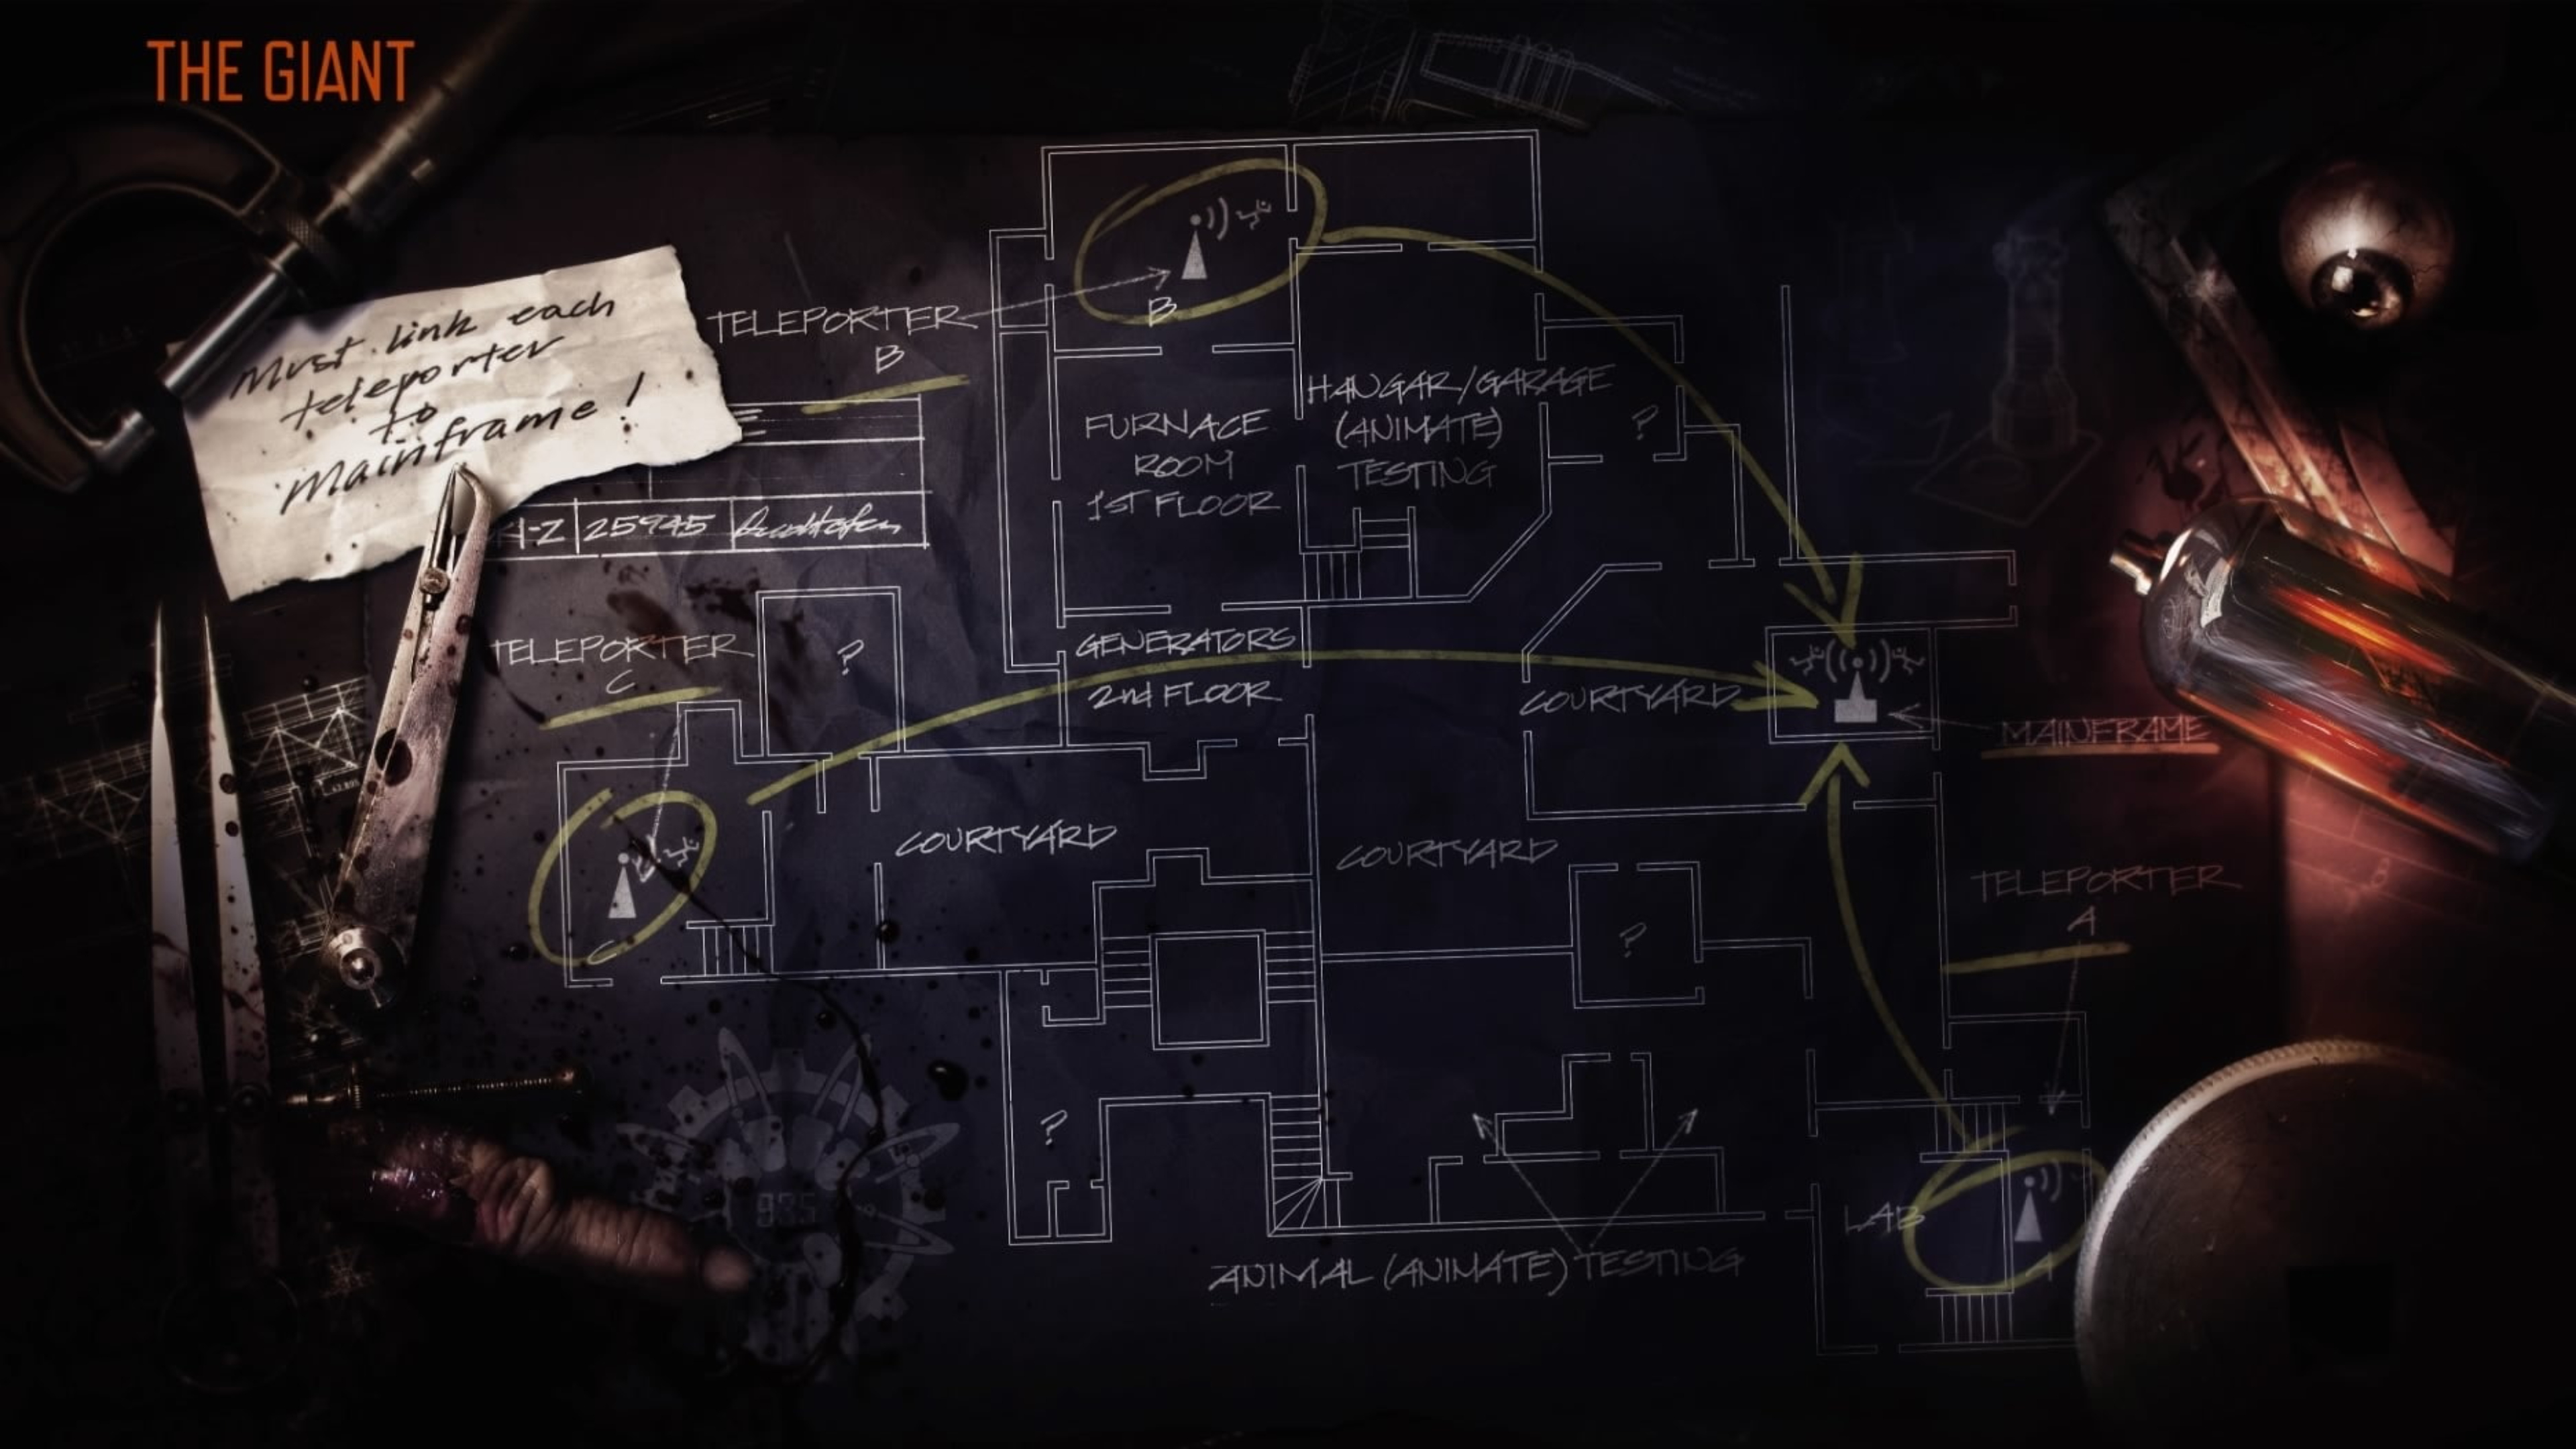 THE GIANT
Must link each
teleporter
to
Mainframe!
TELEPORTER
B
B
FURNACE
ROOM
1ST FLOOR
HANGAR/GARAGE
(ANIMATE)
TESTING
?
25945
TELEPORTER
C
?
GENERATORS
2nd FLOOR
COURTYARD
MAINFRAME
C
COURTYARD
COURTYARD
?
TELEPORTER
A
?
935
LAB
A
ANIMAL (ANIMATE) TESTING